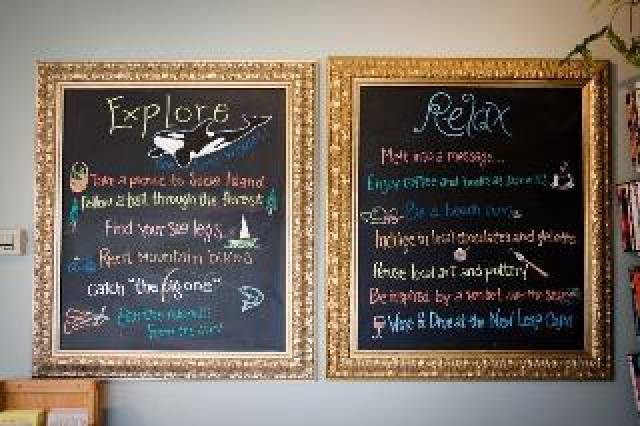 Explore
Take a picnic to Sucia Island
Follow a trail through the forest
Find your sea legs
Rent Mountain bikes
Catch "the big one"
Relax
Melt into a massage...
Enjoy coffee and books at
Be a beach bum
Indulge in local chocolates and gelatto
Peruse local art and pottery
Be inspired by a sunset over the
Wine & Dine at the New Leaf Cafe